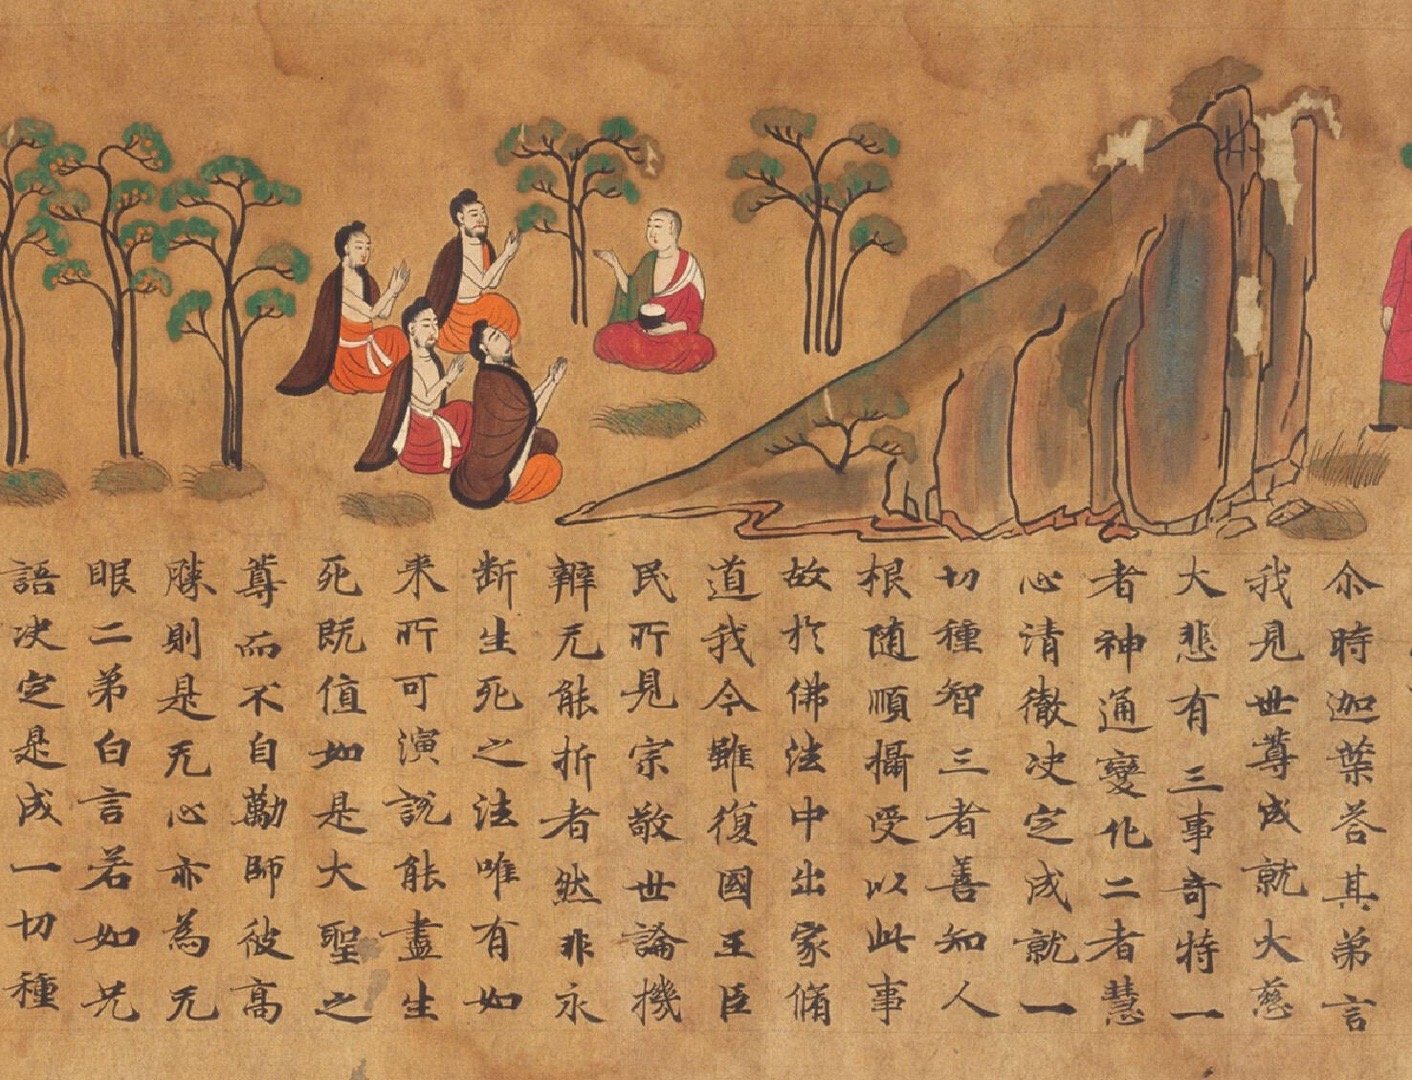 尒時迦葉荅其弟言
我見世尊成就大慈
大悲有三事奇特一
者神通變化二者慧
心清徹决定成就一
切種智三者善知人
根随順攝受以此事
故於佛法中出家脩
道我今雖復國王臣
民所見宗敬世論機
辯无能折者然非永
断生死之法唯有如
来所可演説能盡生
死既值如是大聖之
尊而不自勵師彼高
勝則是无心亦為无
眼二弟白言若如兄
語决定是成一切種